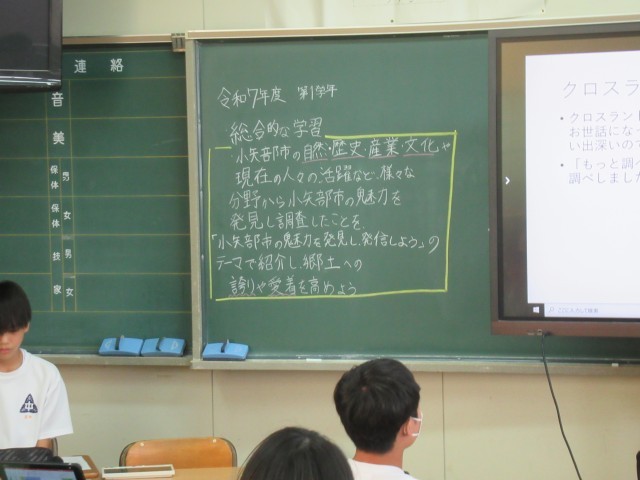 連絡
音
美
保体 男
保体 女
技 男
家 女
令和7年度 第1学年
総合的な学習
小矢部市の自然・歴史・産業・文化や
現在の人々の活躍など、様々な
分野から小矢部市の魅力を
発見し調査したことを、
「小矢部市の魅力を発見し、発信しよう」の
テーマで紹介し、郷土への
誇りや愛着を高めよう
クロスラン
• クロスラント
お世話にな
い出深いので
• 「もっと調べ
調べしました
中